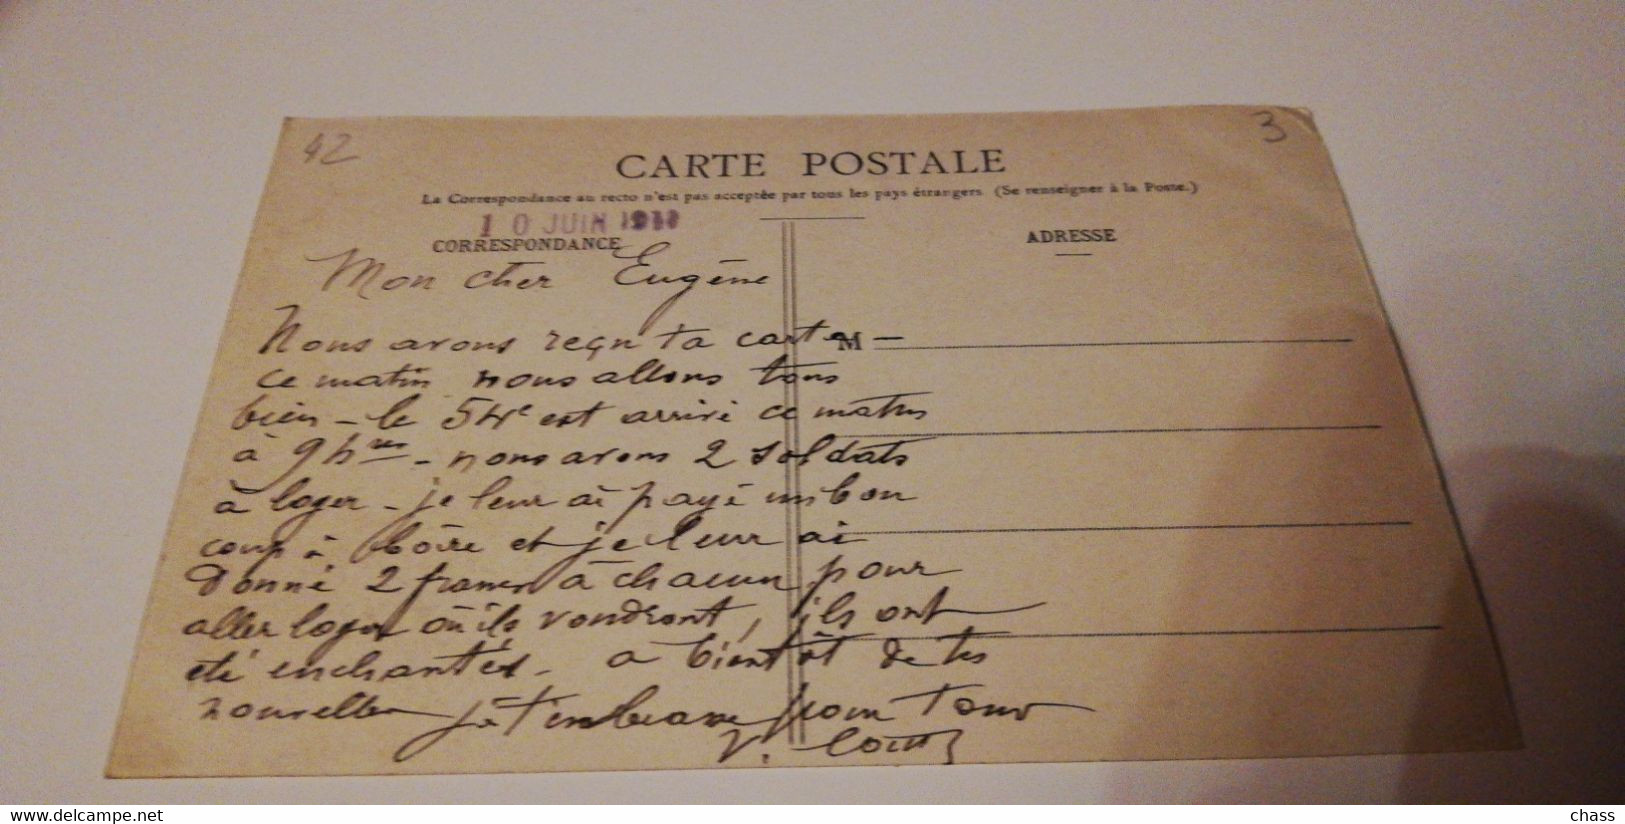 42
3
CARTE POSTALE
La Correspondance au recto n'est pas acceptée par tous les pays étrangers. (Se renseigner à la Poste.)
10 JUIN
CORRESPONDANCE
ADRESSE
Mon cher Eugène
Nous avons reçu ta carte
M
ce matin nous allons tous
bien - le 54e est arrivé ce matin
à 9 hres - nous avons 2 soldats
à loger - je leur ai payé un bon
coup à boire et je leur ai
donné 2 francs à chacun pour
aller loger où ils voudront, ils ont
été enchantés. a bientôt de tes
nouvelles je t'embrasse pour tous
V.
www.delcampe.net
chass